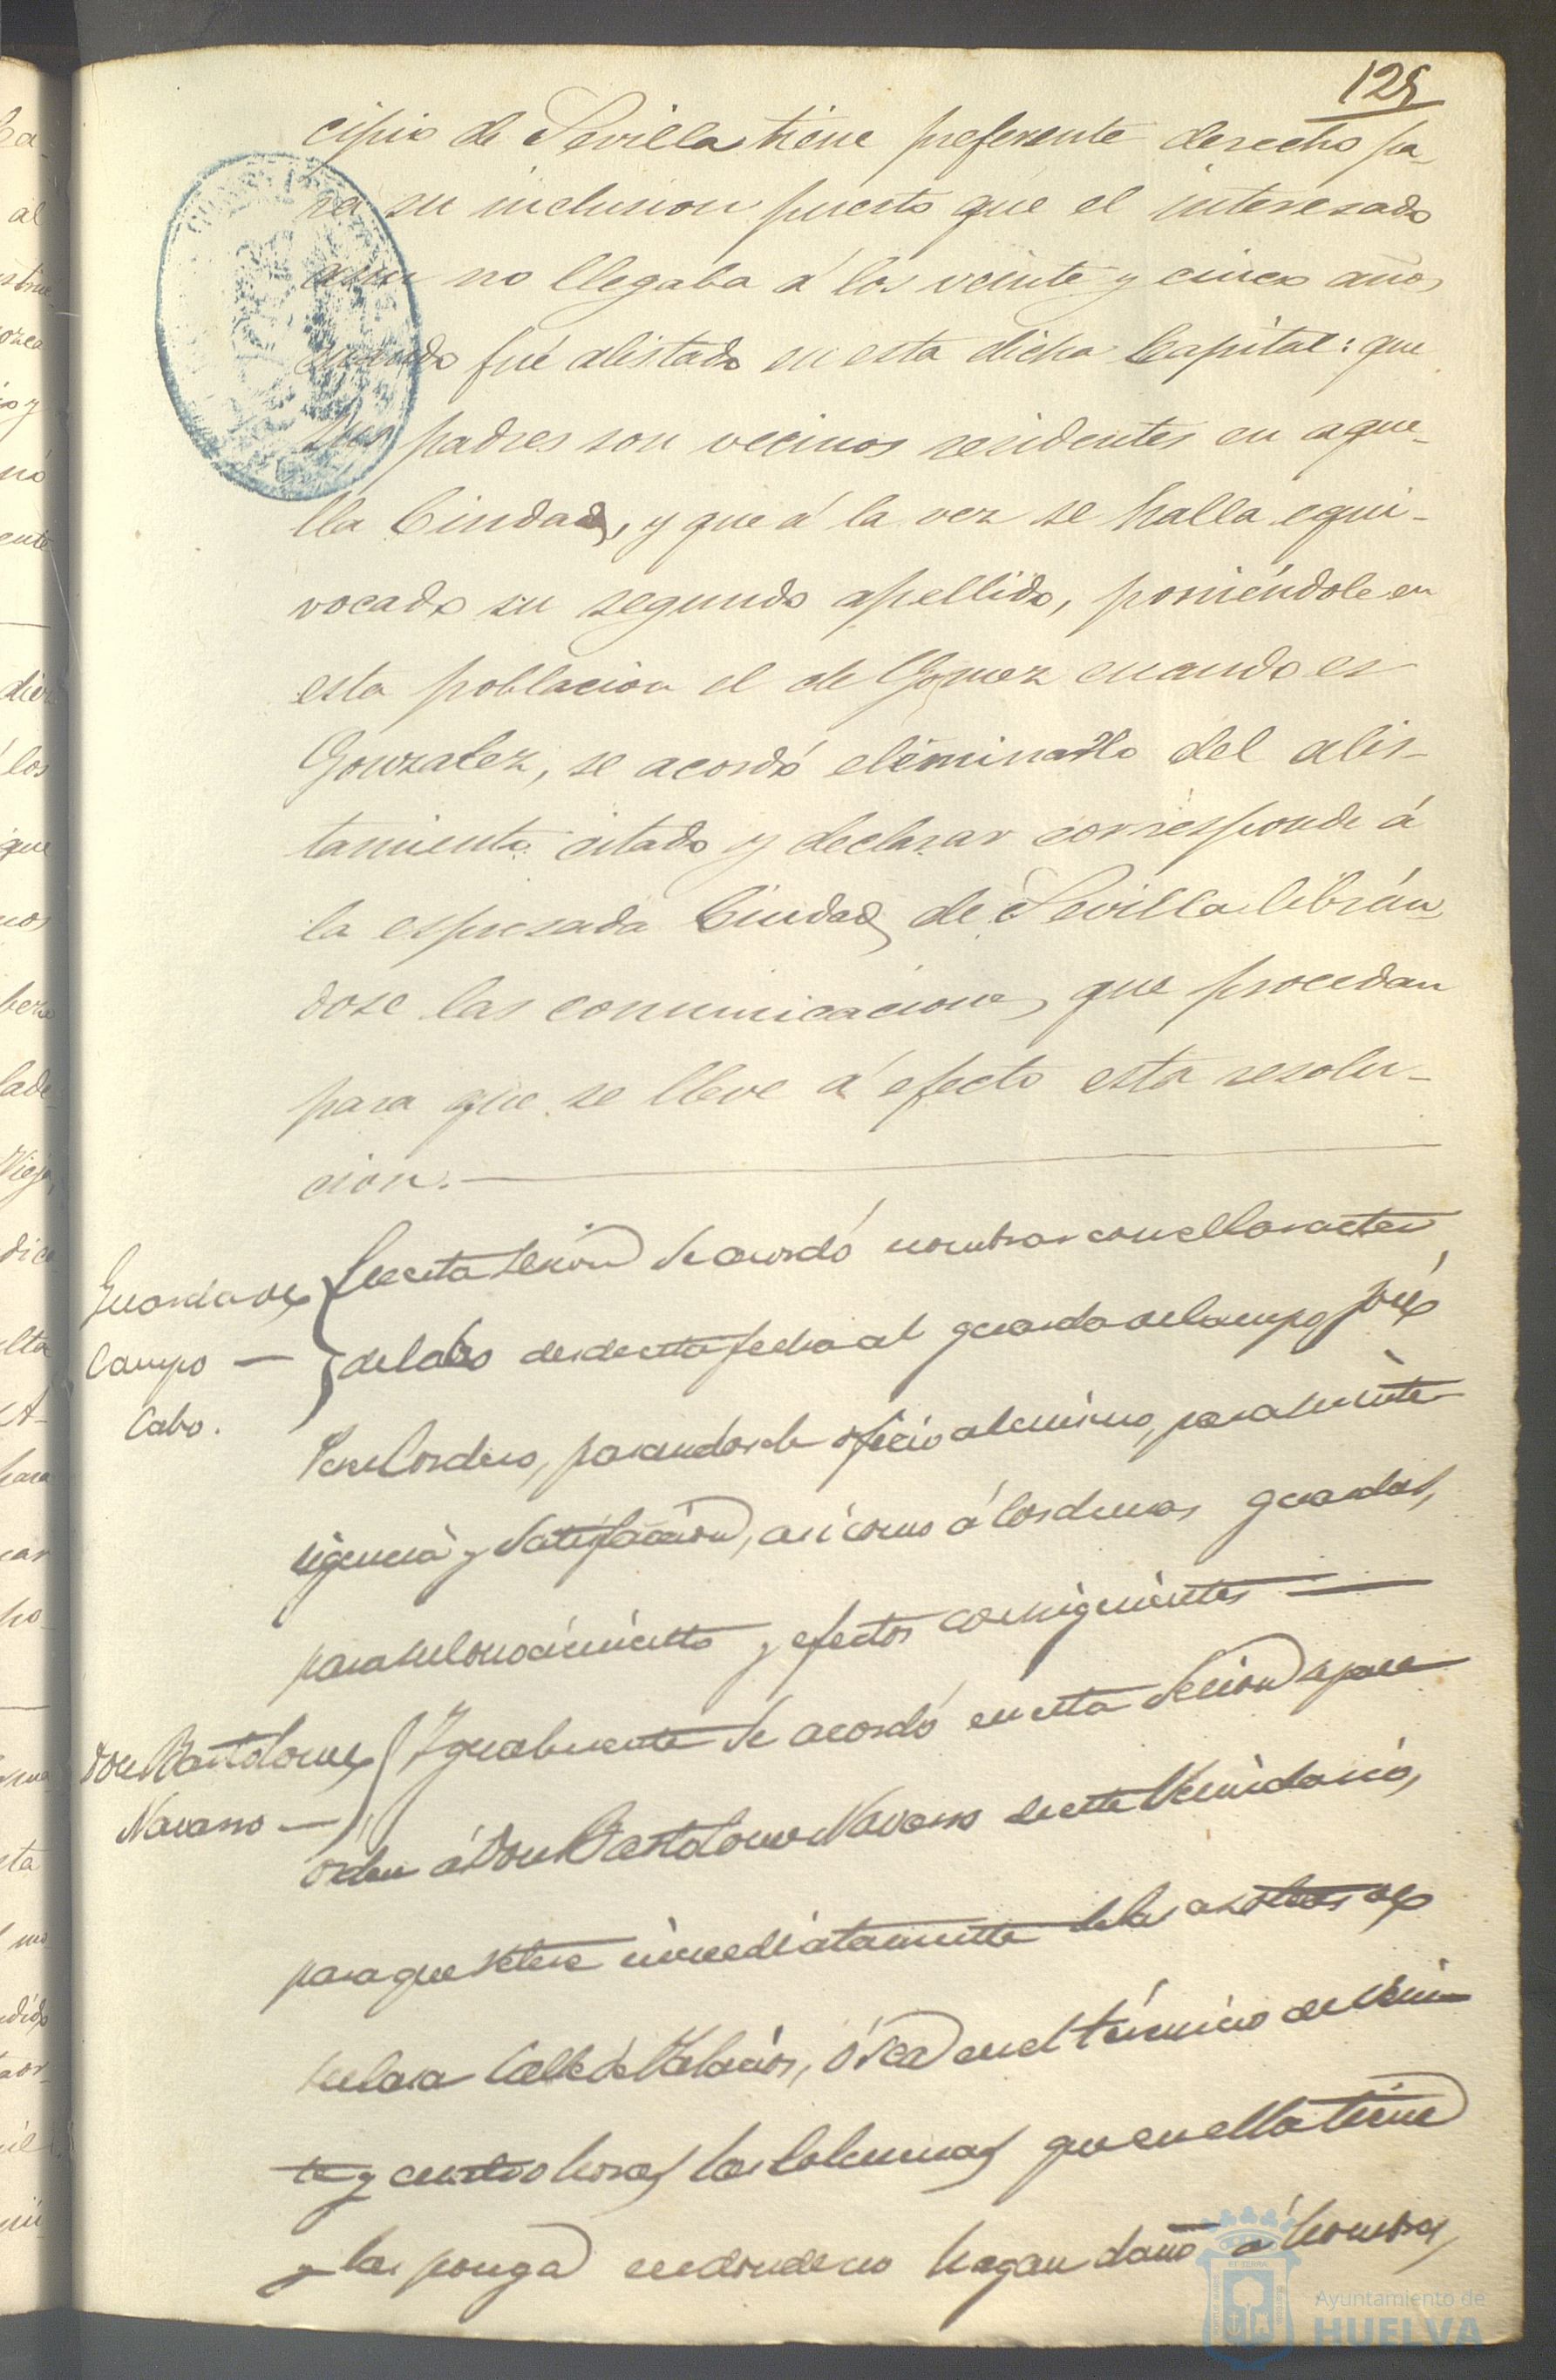 125
cipio de Sevilla tiene preferente derecho pa-
ra su inclusion puesto que el interesado
aun no llegaba á los veinte y cinco años
cuando fué alistado en esta dicha Capital: que
sus padres son vecinos residentes en aque-
lla Ciudad, y que á la vez se halla equi-
vocado su segundo apellido, poniéndole en
esta poblacion el de Gomez cuando es
Gonzalez, se acordó eliminarlo del alis-
tamiento citado y declarar corresponde á
la espresada Ciudad de Sevilla librán
dose las comunicaciones que procedan
para que se lleve á efecto esta resolu-
cion.
Guarda de
Campo —
Cabo.
En esta sesion se acordó nombrar con el caracter
de Cabo desde esta fecha al guarda de campo José
Cordero, pasandosele oficio al mismo, para su inte-
ligencia y satisfaccion, asi como á los demas guardas,
para su conocimiento y efectos consiguientes
Don Bartolome
Navarro —
Igualmente se acordó en esta Sesion se pase
orden á Don Bartolome Navarro de este Vecindario,
para que retire inmediatamente de las azoteas de
su Casa Calle de Palacios, ó sea en el término de vein-
te y cuatro horas las Colmenas que en ella tiene
y las ponga en donde no hagan daño á hombres,
Ayuntamiento de
HUELVA